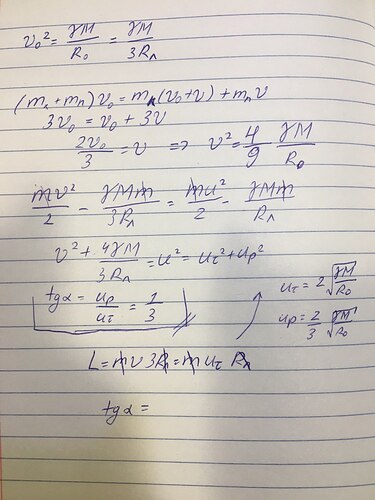 v₀² = γM/R₀ = γM/3Rл
(mк + mп) v₀ = mк(v₀+v) + mп v
3v₀ = v₀ + 3v
2v₀/3 = v ⇒ v² = 4/9 γM/R₀
mv²/2 - γMm/3Rл = mu²/2 - γMm/Rл
v² + 4γM/3Rл = u² = uτ² + up²
tgα = up/uτ = 1/3
uτ = 2√γM/R₀
up = 2/3 √γM/R₀
L = mv3Rл = m uτ Rл
tgα =